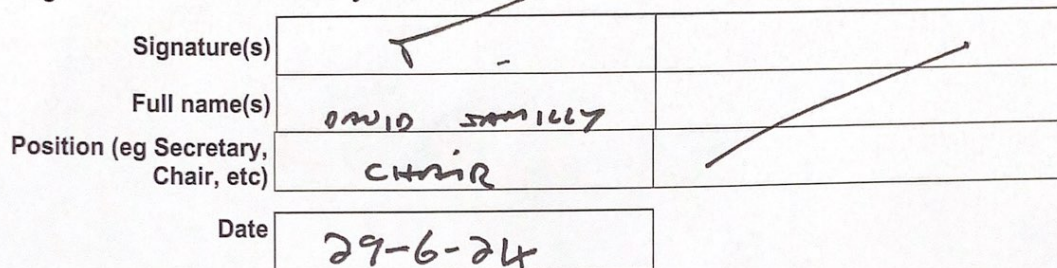 Signature(s)
Full name(s) DAVID SAMILLY
Position (eg Secretary,
Chair, etc) CHAIR
Date 29-6-24